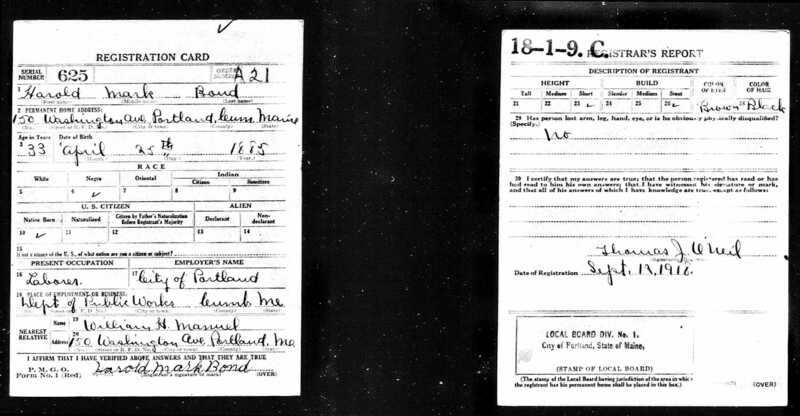 REGISTRATION CARD
SERIAL NUMBER 625 ORDER NUMBER A21
1 Harold Mark Bond
(First name) (Middle name) (Last name)
2 PERMANENT HOME ADDRESS:
150 Washington Ave Portland, Cumb. Maine
(No.) (Street or R. F. D. No.) (City or town) (County) (State)
Age in Years Date of Birth
3 33 4 April 25th 1885
(Month.) (Day.) (Year.)
RACE
White Negro Oriental Indian
Citizen Noncitizen
5 6 ✓ 7 8 9
U. S. CITIZEN ALIEN
Native Born Naturalized Citizen by Father's Naturalization Before Registrant's Majority Declarant Non-declarant
10 ✓ 11 12 13 14
15
If not a citizen of the U. S., of what nation are you a citizen or subject?
PRESENT OCCUPATION EMPLOYER'S NAME
16 Laborer 17 City of Portland
18 PLACE OF EMPLOYMENT OR BUSINESS:
Dept of Public Works Cumb Me
(No.) (Street or R. F. D. No.) (City or town) (County) (State)
NEAREST RELATIVE Name 19 William H. Manuel
Address 20 150 Washington Ave, Portland, Me
(No.) (Street or R. F. D. No.) (City or town) (County) (State)
I AFFIRM THAT I HAVE VERIFIED ABOVE ANSWERS AND THAT THEY ARE TRUE
P. M. G. O.
Form No. 1 (Red) Harold Mark Bond
(Registrant's signature or mark) (OVER)
18-1-9. C. REGISTRAR'S REPORT
DESCRIPTION OF REGISTRANT
HEIGHT BUILD COLOR OF EYES COLOR OF HAIR
Tall Medium Short Slender Medium Stout
21 22 23 ✓ 24 25 26 ✓ 27 Brown 28 Black
29 Has person lost arm, leg, hand, eye, or is he obviously physically disqualified?
(Specify.) No
30 I certify that my answers are true; that the person registered has read or has
had read to him his own answers; that I have witnessed his signature or mark,
and that all of his answers of which I have knowledge are true, except as follows:
Thomas J. O'Neil
Date of Registration Sept. 12, 1918
LOCAL BOARD DIV. No. 1.
City of Portland, State of Maine,
(STAMP OF LOCAL BOARD)
(The stamp of the Local Board having jurisdiction of the area in which
the registrant has his permanent home shall be placed in this box.) (OVER)